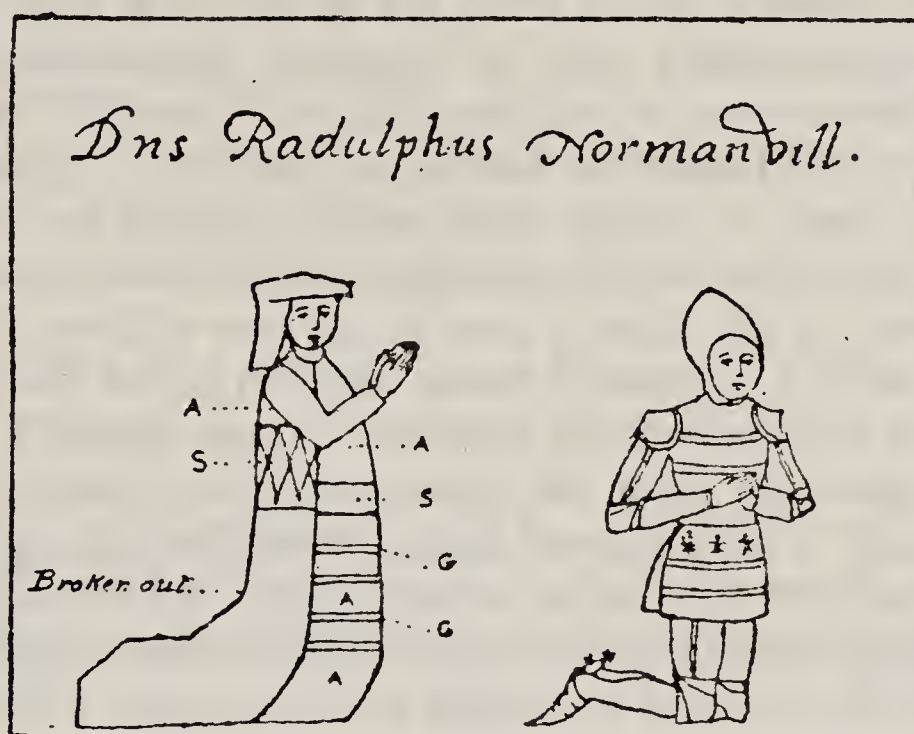 Dns Radulphus Normanvill.
A
S
A
S
G
Broken out.
A
G
A